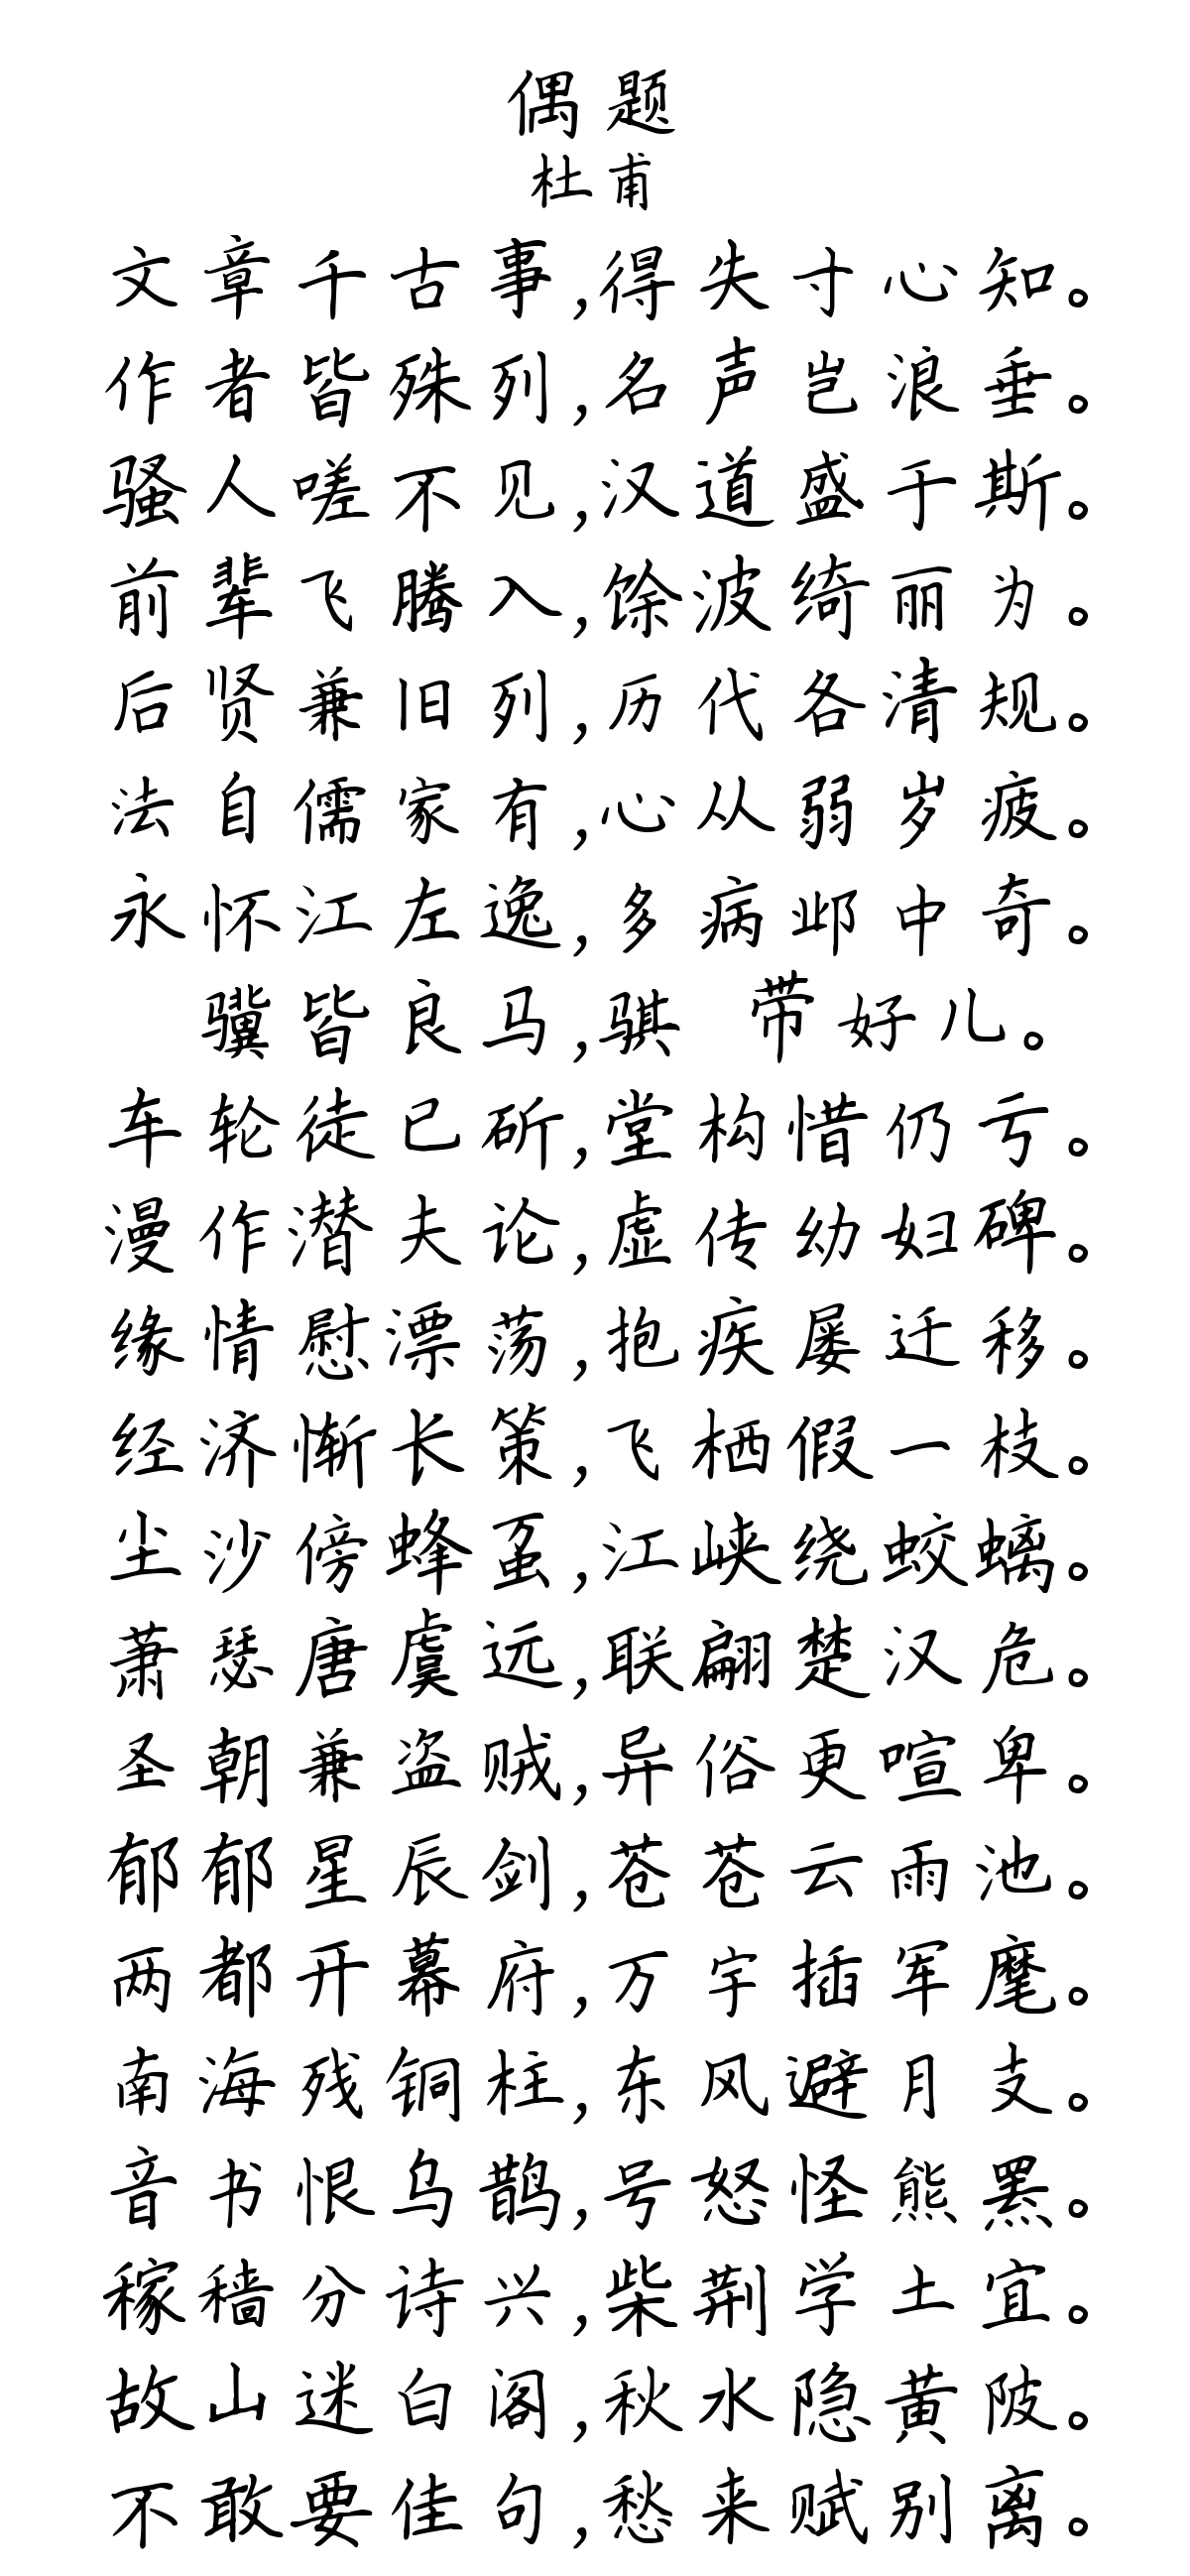 偶题
杜甫
文章千古事,得失寸心知。
作者皆殊列,名声岂浪垂。
骚人嗟不见,汉道盛于斯。
前辈飞腾入,馀波绮丽为。
后贤兼旧列,历代各清规。
法自儒家有,心从弱岁疲。
永怀江左逸,多病邺中奇。
骥皆良马,骐 带好儿。
车轮徒已斫,堂构惜仍亏。
漫作潜夫论,虚传幼妇碑。
缘情慰漂荡,抱疾屡迁移。
经济惭长策,飞栖假一枝。
尘沙傍蜂虿,江峡绕蛟螭。
萧瑟唐虞远,联翩楚汉危。
圣朝兼盗贼,异俗更喧卑。
郁郁星辰剑,苍苍云雨池。
两都开幕府,万宇插军麾。
南海残铜柱,东风避月支。
音书恨乌鹊,号怒怪熊罴。
稼穑分诗兴,柴荆学土宜。
故山迷白阁,秋水隐黄陂。
不敢要佳句,愁来赋别离。